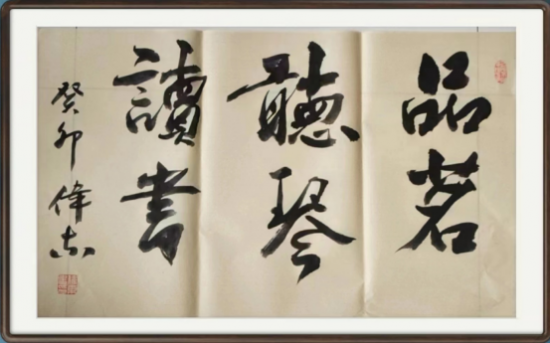 品茗
聽琴
讀書
癸卯偉志